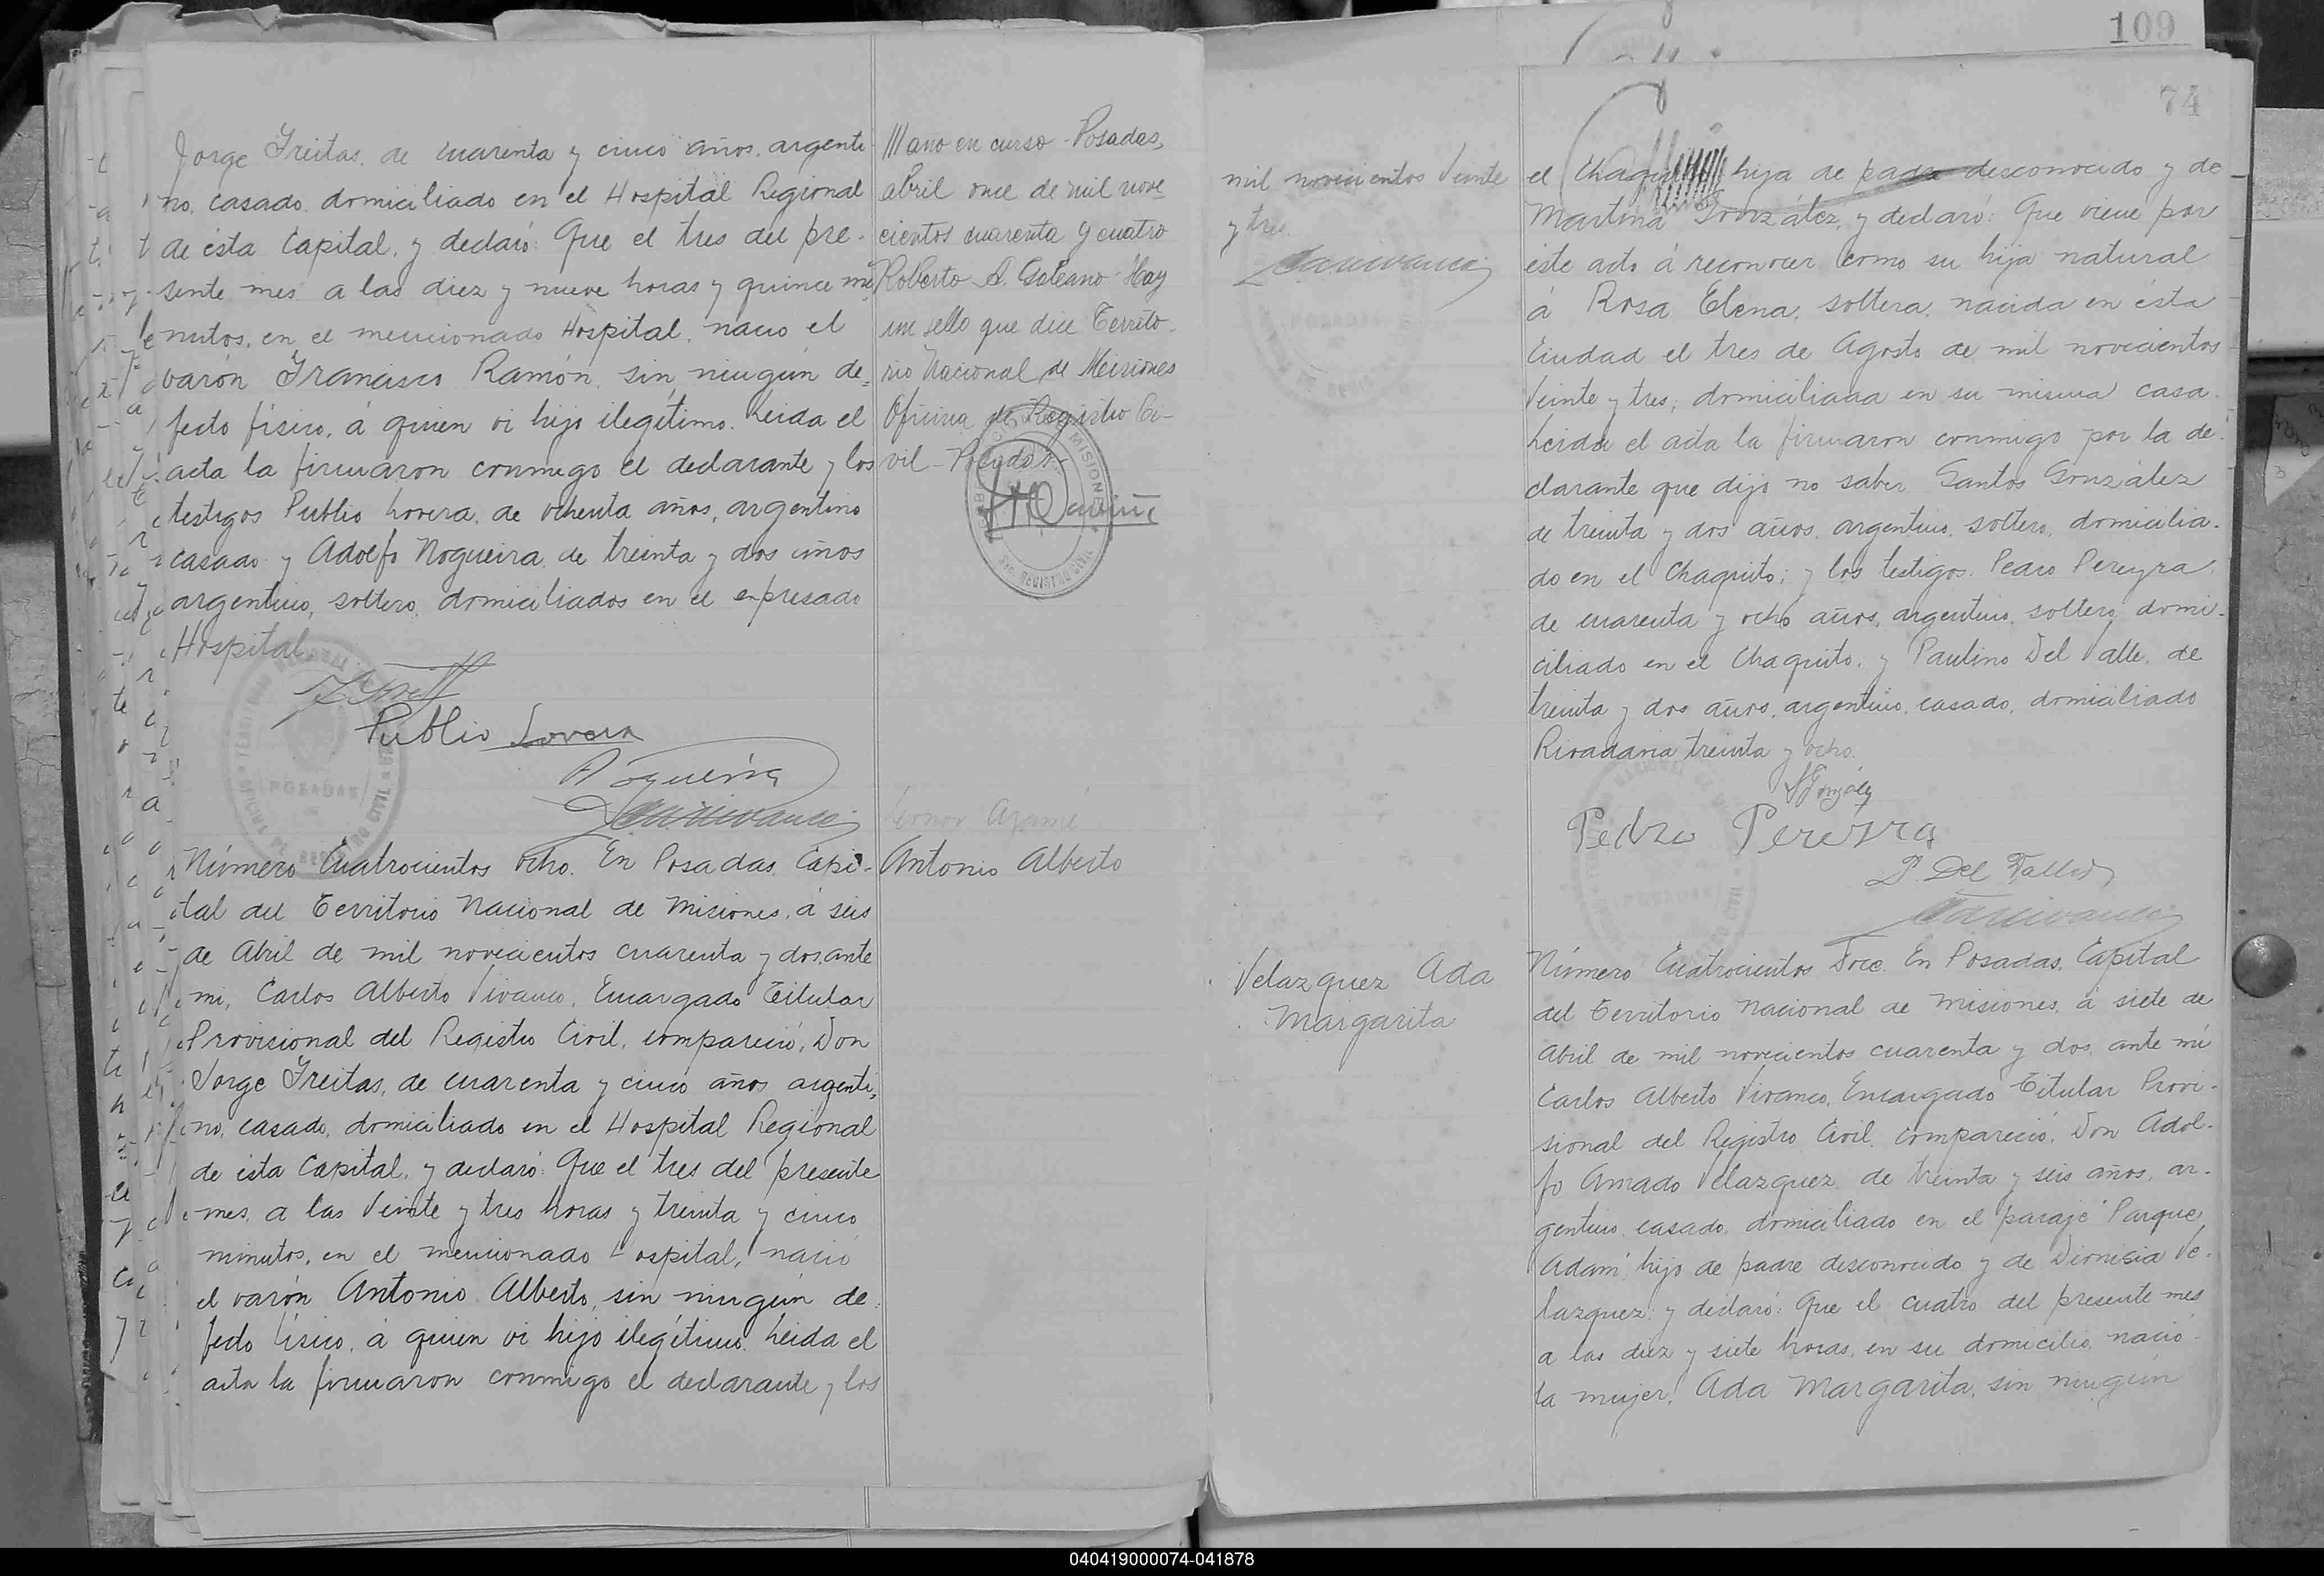 Jorge Freitas, de cuarenta y cinco años, argenti-
no, casado, domiciliado en el Hospital Regional
de ésta Capital, y declaró: Que el tres del pre-
sente mes a las diez y nueve horas y quince mi-
nutos, en el mencionado Hospital, nació el
varón Francisco Ramón, sin ningún de-
fecto físico, á quien vi hijo ilegítimo. Leida el
acta la firmaron conmigo el declarante y los
testigos Publio Lovera, de ochenta años, argentino
casado y Adolfo Nogueira, de treinta y dos años
argentino, soltero, domiciliados en el expresado
Hospital.
Publio Lovera
Nogueira
POSADAS
año en curso - Posadas,
abril once de mil nove-
cientos cuarenta y cuatro
Roberto A. Galeano - Hay
un sello que dice Territo-
rio Nacional de Misiones
Oficina de Registro Ci-
vil - Posadas
Antonio Alberto
Número Cuatrocientos ocho. En Posadas, Capi-
tal del Territorio Nacional de Misiones, á seis
de Abril de mil novecientos cuarenta y dos, ante
mi, Carlos Alberto Vivanco, Encargado Titular
Provisional del Registro Civil, compareció, Don
Jorge Freitas, de cuarenta y cinco años argenti-
no, casado, domiciliado en el Hospital Regional
de ésta Capital, y declaró: Que el tres del presente
mes, a las Veinte y tres horas y treinta y cinco
minutos, en el mencionado Hospital, nació
el varón Antonio Alberto, sin ningún de-
fecto físico, á quien vi hijo ilegítimo. Leida el
acta la firmaron conmigo el declarante y los
109
74
mil novecientos Veinte
y tres
el hija de padre desconocido y de
Martina González, y declaró: Que viene por
éste acto á reconocer como su hija natural
á Rosa Elena, soltera, nacida en ésta
Ciudad el tres de Agosto de mil novecientos
Veinte y tres, domiciliada en su misma casa.
Leida el acta la firmaron conmigo por la de-
clarante que dijo no saber Santos González
de treinta y dos años, argentino, soltero, domicilia-
do en el Chaquito; y los testigos: Pedro Pereyra,
de cuarenta y ocho años, argentino, soltero, domi-
ciliado en el Chaquito, y Paulino Del Valle, de
treinta y dos años, argentino, casado, domiciliado
Rivadavia treinta y ocho.
S González
Pedro Pereyra
P. Del Valle
POSADAS
Velazquez Ada
Margarita
Número Cuatrocientos Doce. En Posadas, Capital
del Territorio Nacional de Misiones, á siete de
Abril de mil novecientos cuarenta y dos, ante mi
Carlos Alberto Vivanco, Encargado Titular Provi-
sional del Registro Civil, compareció, Don Adol-
fo Amado Velazquez de treinta y seis años, ar-
gentino, casado, domiciliado en el paraje "Parque
Adam", hijo de padre desconocido y de Dionisia Ve-
lazquez; y declaró: Que el cuatro del presente mes
a las diez y siete horas, en su domicilio, nació
la mujer, Ada Margarita, sin ningún
040419000074-041878